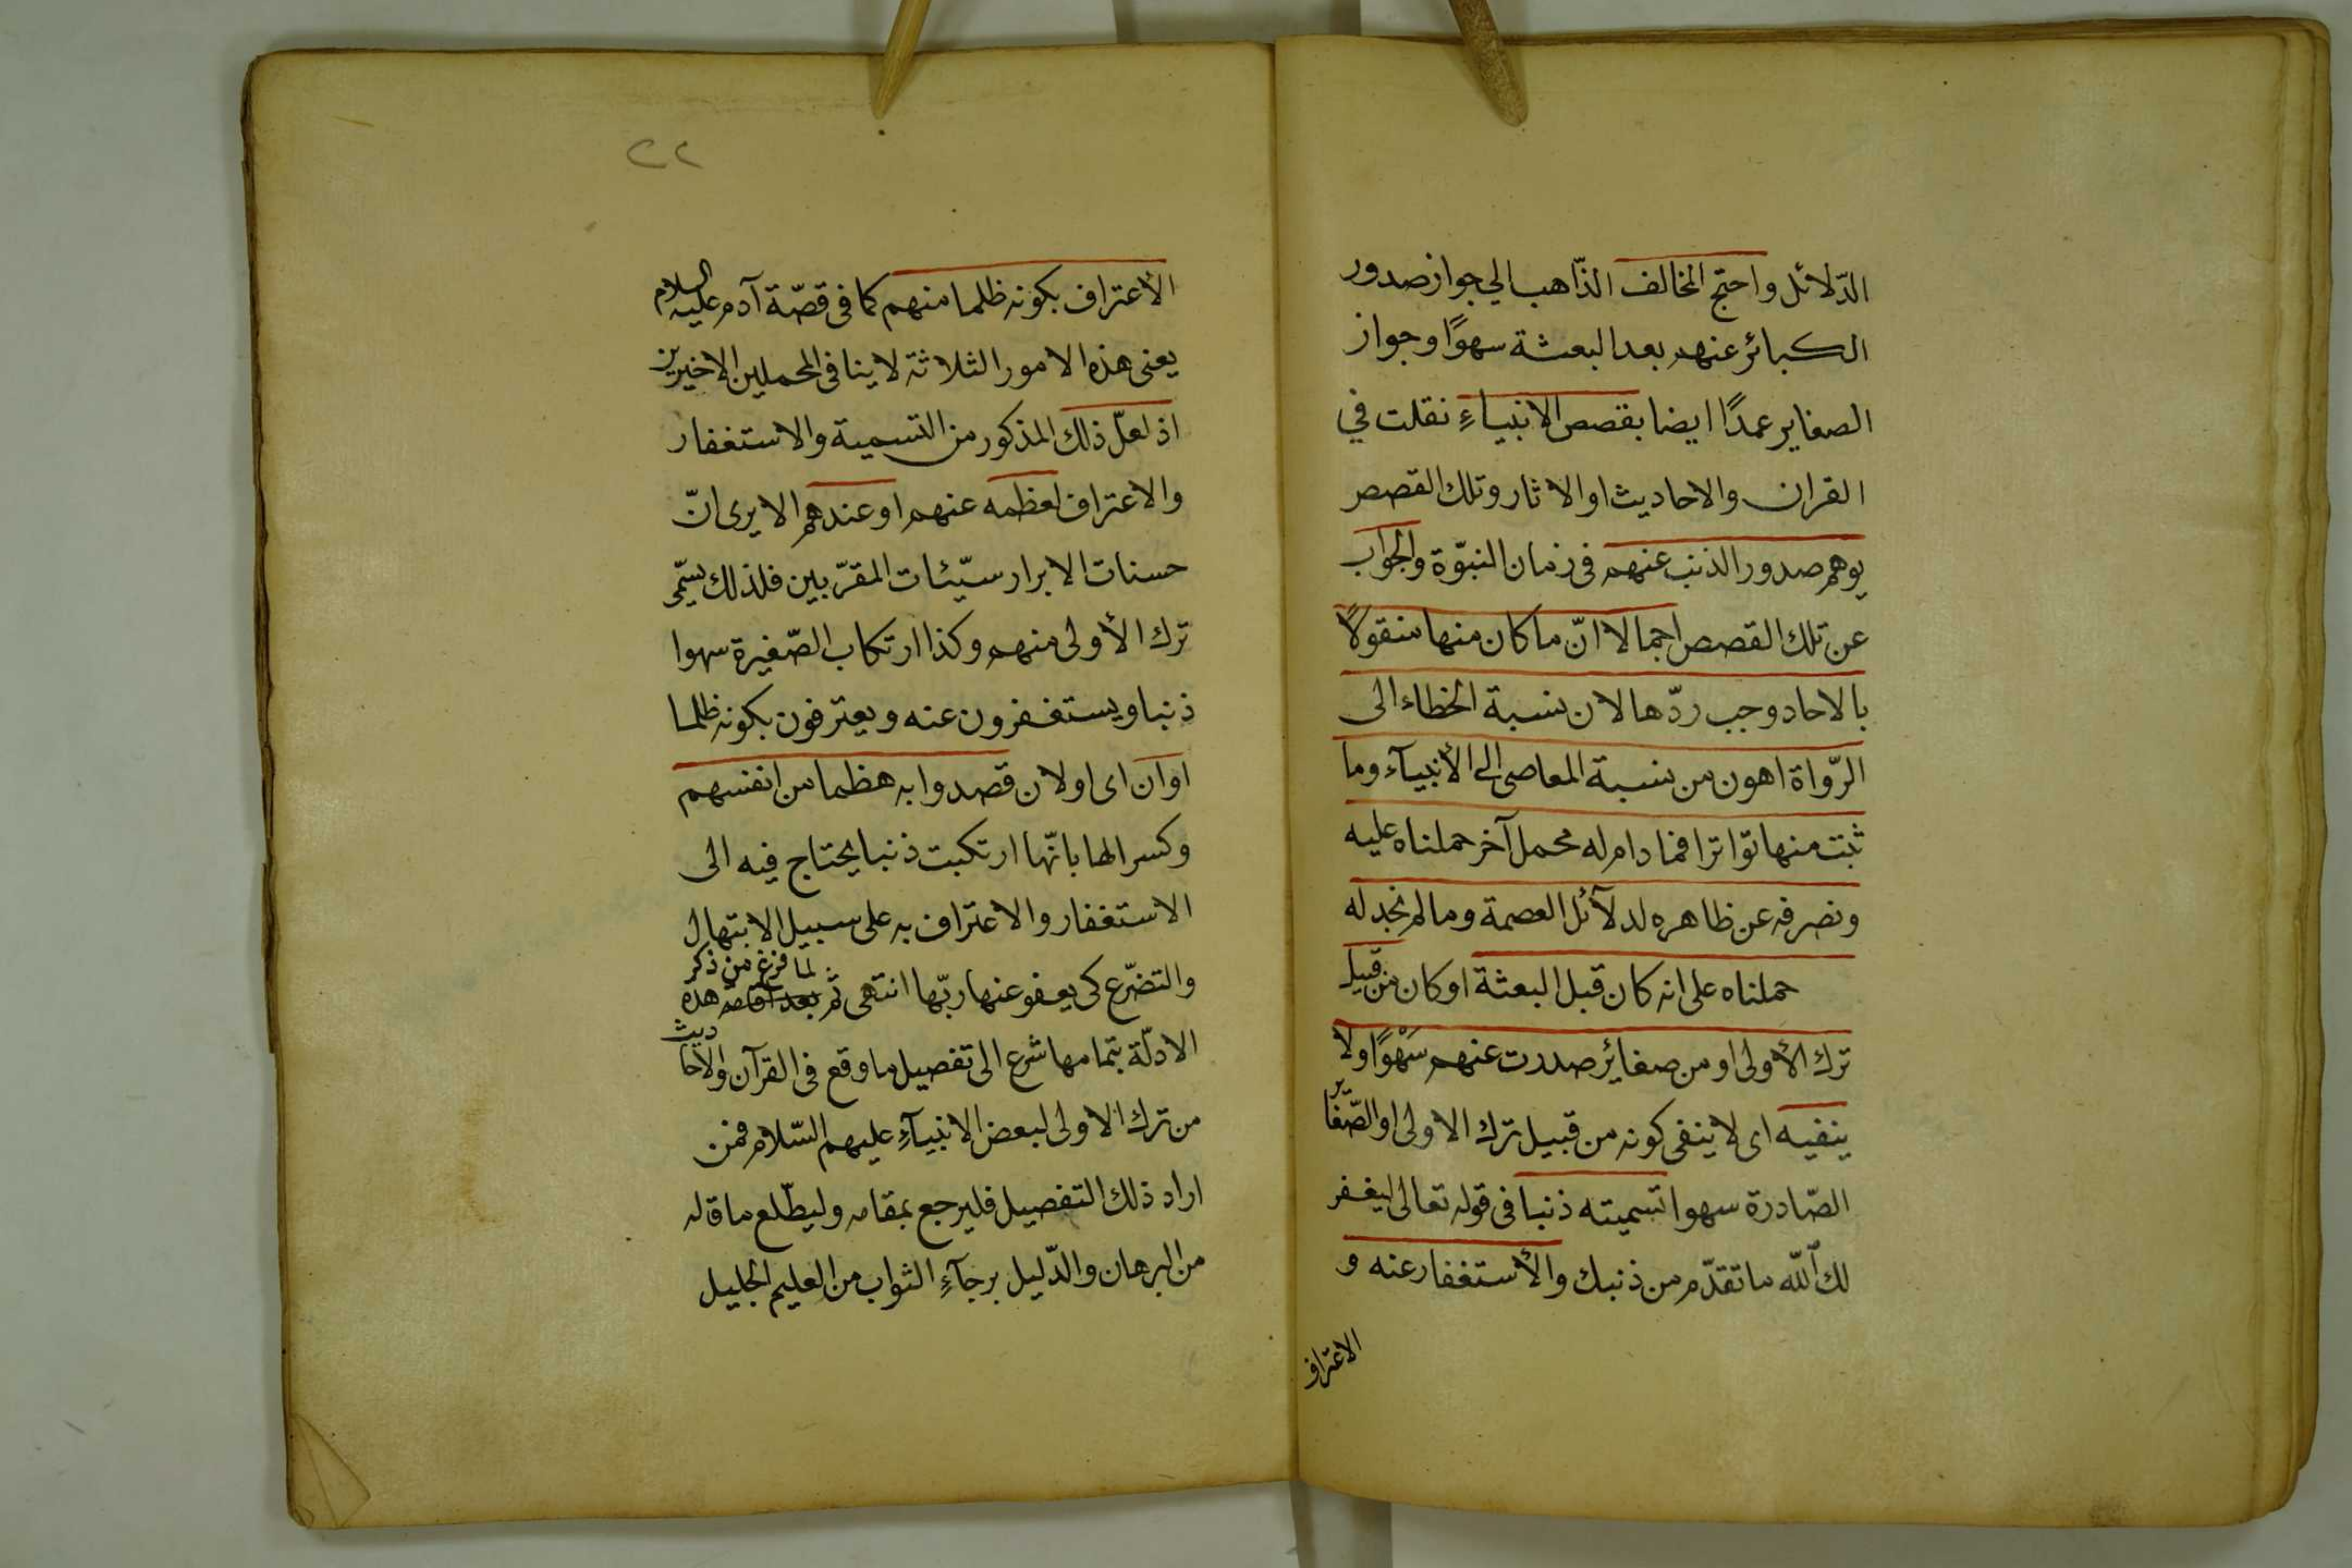 الدّلائل واحتج المخالف الذّاهب الي جواز صدور
الكبائر عنهم بعد البعثة سهوًا وجواز
الصغاير عمدًا ايضا بقصص الانبياءِ نقلت في
القران والاحاديث او الاثار وتلك القصص
يوهم صدور الذنب عنهم فى زمان النبوّة والجواب
عن تلك القصص اجمالا انّ ما كان منها منقولاً
بالاحاد وجب ردّها لان نسبة الخطاء الى
الرّواة اهون من نسبة المعاصى الى الأنبيآء وما
ثبت منها تواترا فما دام له محمل آخر حملناه عليه
ونصرفه عن ظاهره لدلآئل العصمة وما لم نجد له
حملناه على انه كان قبل البعثة او كان من قبيل
ترك الأولى او من صغائر صدرت عنهم سَهْوًا ولا
ينفيه اى لا ينفى كونه من قبيل ترك الاولى او الصّغاير
الصّادرة سهوا تسميته ذنبا فى قوله تعالى ليغفر
لك الله ما تقدّم من ذنبك والأستغفار عنه و
الاعتراف
٢٢
الأعتراف بكونه ظلما منهم كما فى قصّة آدم عليه السلام
يعنى هذه الامور الثلاثة لا ينافى المحملين الاخيرين
اذ لعلّ ذلك المذكور من التسمية والاستغفار
والاعتراف لعظمه عنهم او عندهم الا يرى انّ
حسنات الابرار سيّئات المقرّبين فلذلك يسمّى
ترك الأولى منهم وكذا ارتكاب الصّغيرة سهوا
ذنبا ويستغفرون عنه ويعترفون بكونه ظلما
او ان اى او لان قصدوا به هظما من انفسهم
وكسرا لها بانّها ارتكبت ذنبا يحتاج فيه الى
الاستغفار والاعتراف به على سبيل الابتهال
والتضرّع كى يعفو عنها ربّها انتهى ثم لما فرغ من ذكر هذه
الادلّة بتمامها شرع الى تفصيل ما وقع فى القرآن والاحاديث
من ترك الاولى لبعض الانبيآءِ عليهم السّلام فمن
اراد ذلك التفصيل فليرجع بمقامه وليطّلع ما قاله
من البرهان والدّليل برجآءِ الثواب من العليم الجليل